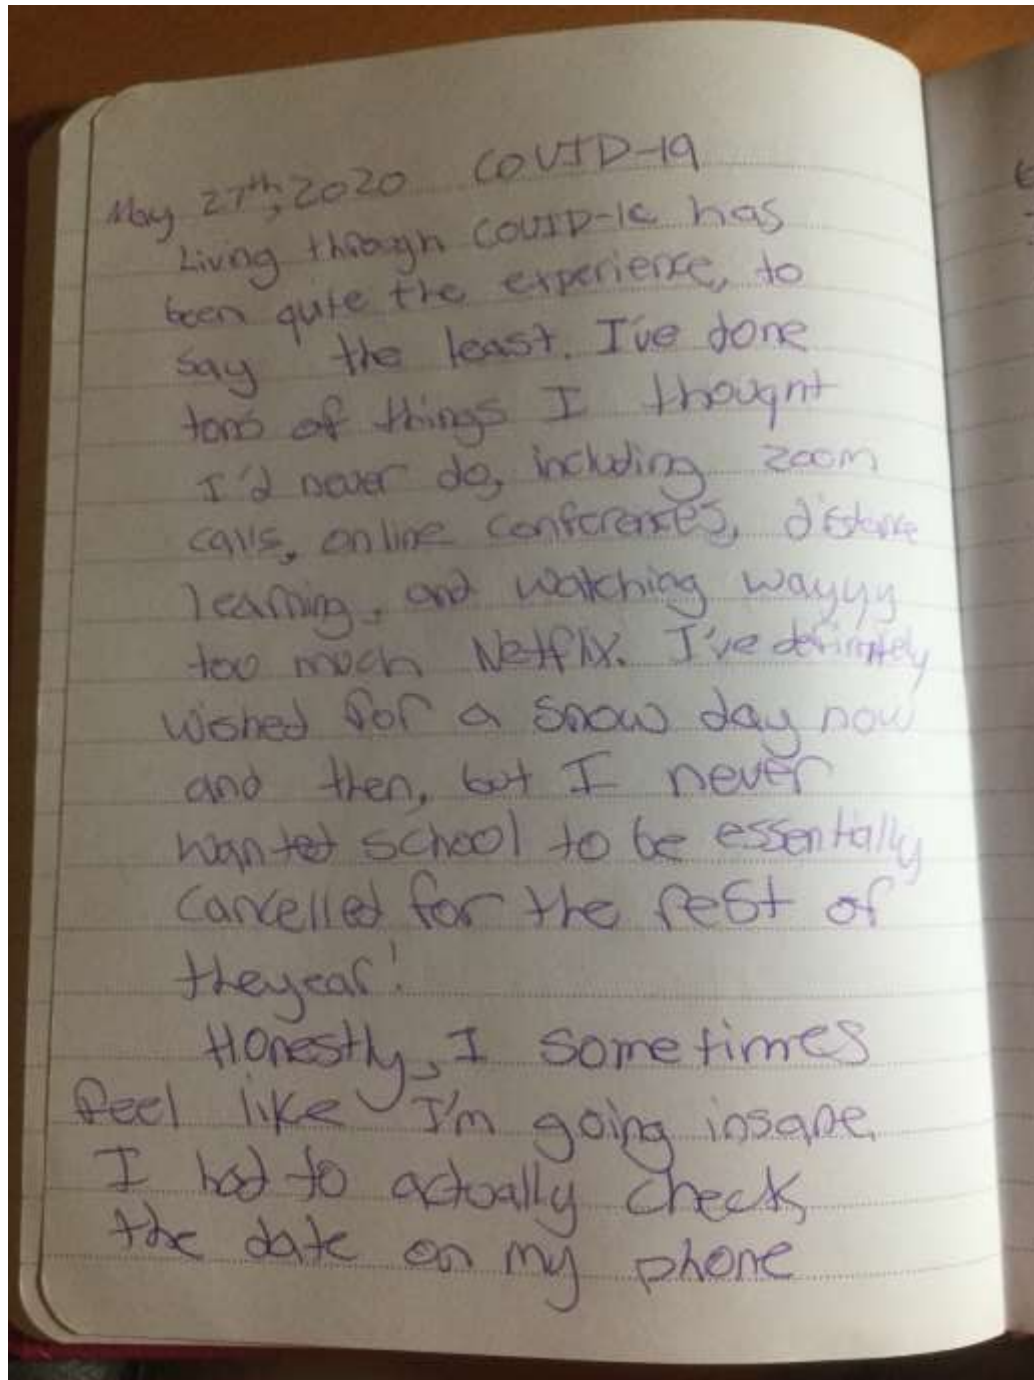 May 27th, 2020 COVID-19
Living through COVID-19 has
been quite the experience, to
say the least. I've done
tons of things I thought
I'd never do, including zoom
calls, online conferences, distance
learning, and watching wayyy
too much Netflix. I've definitely
wished for a snow day now
and then, but I never
wanted school to be essentially
cancelled for the rest of
the year!
Honestly, I sometimes
feel like I'm going insane.
I had to actually check
the date on my phone